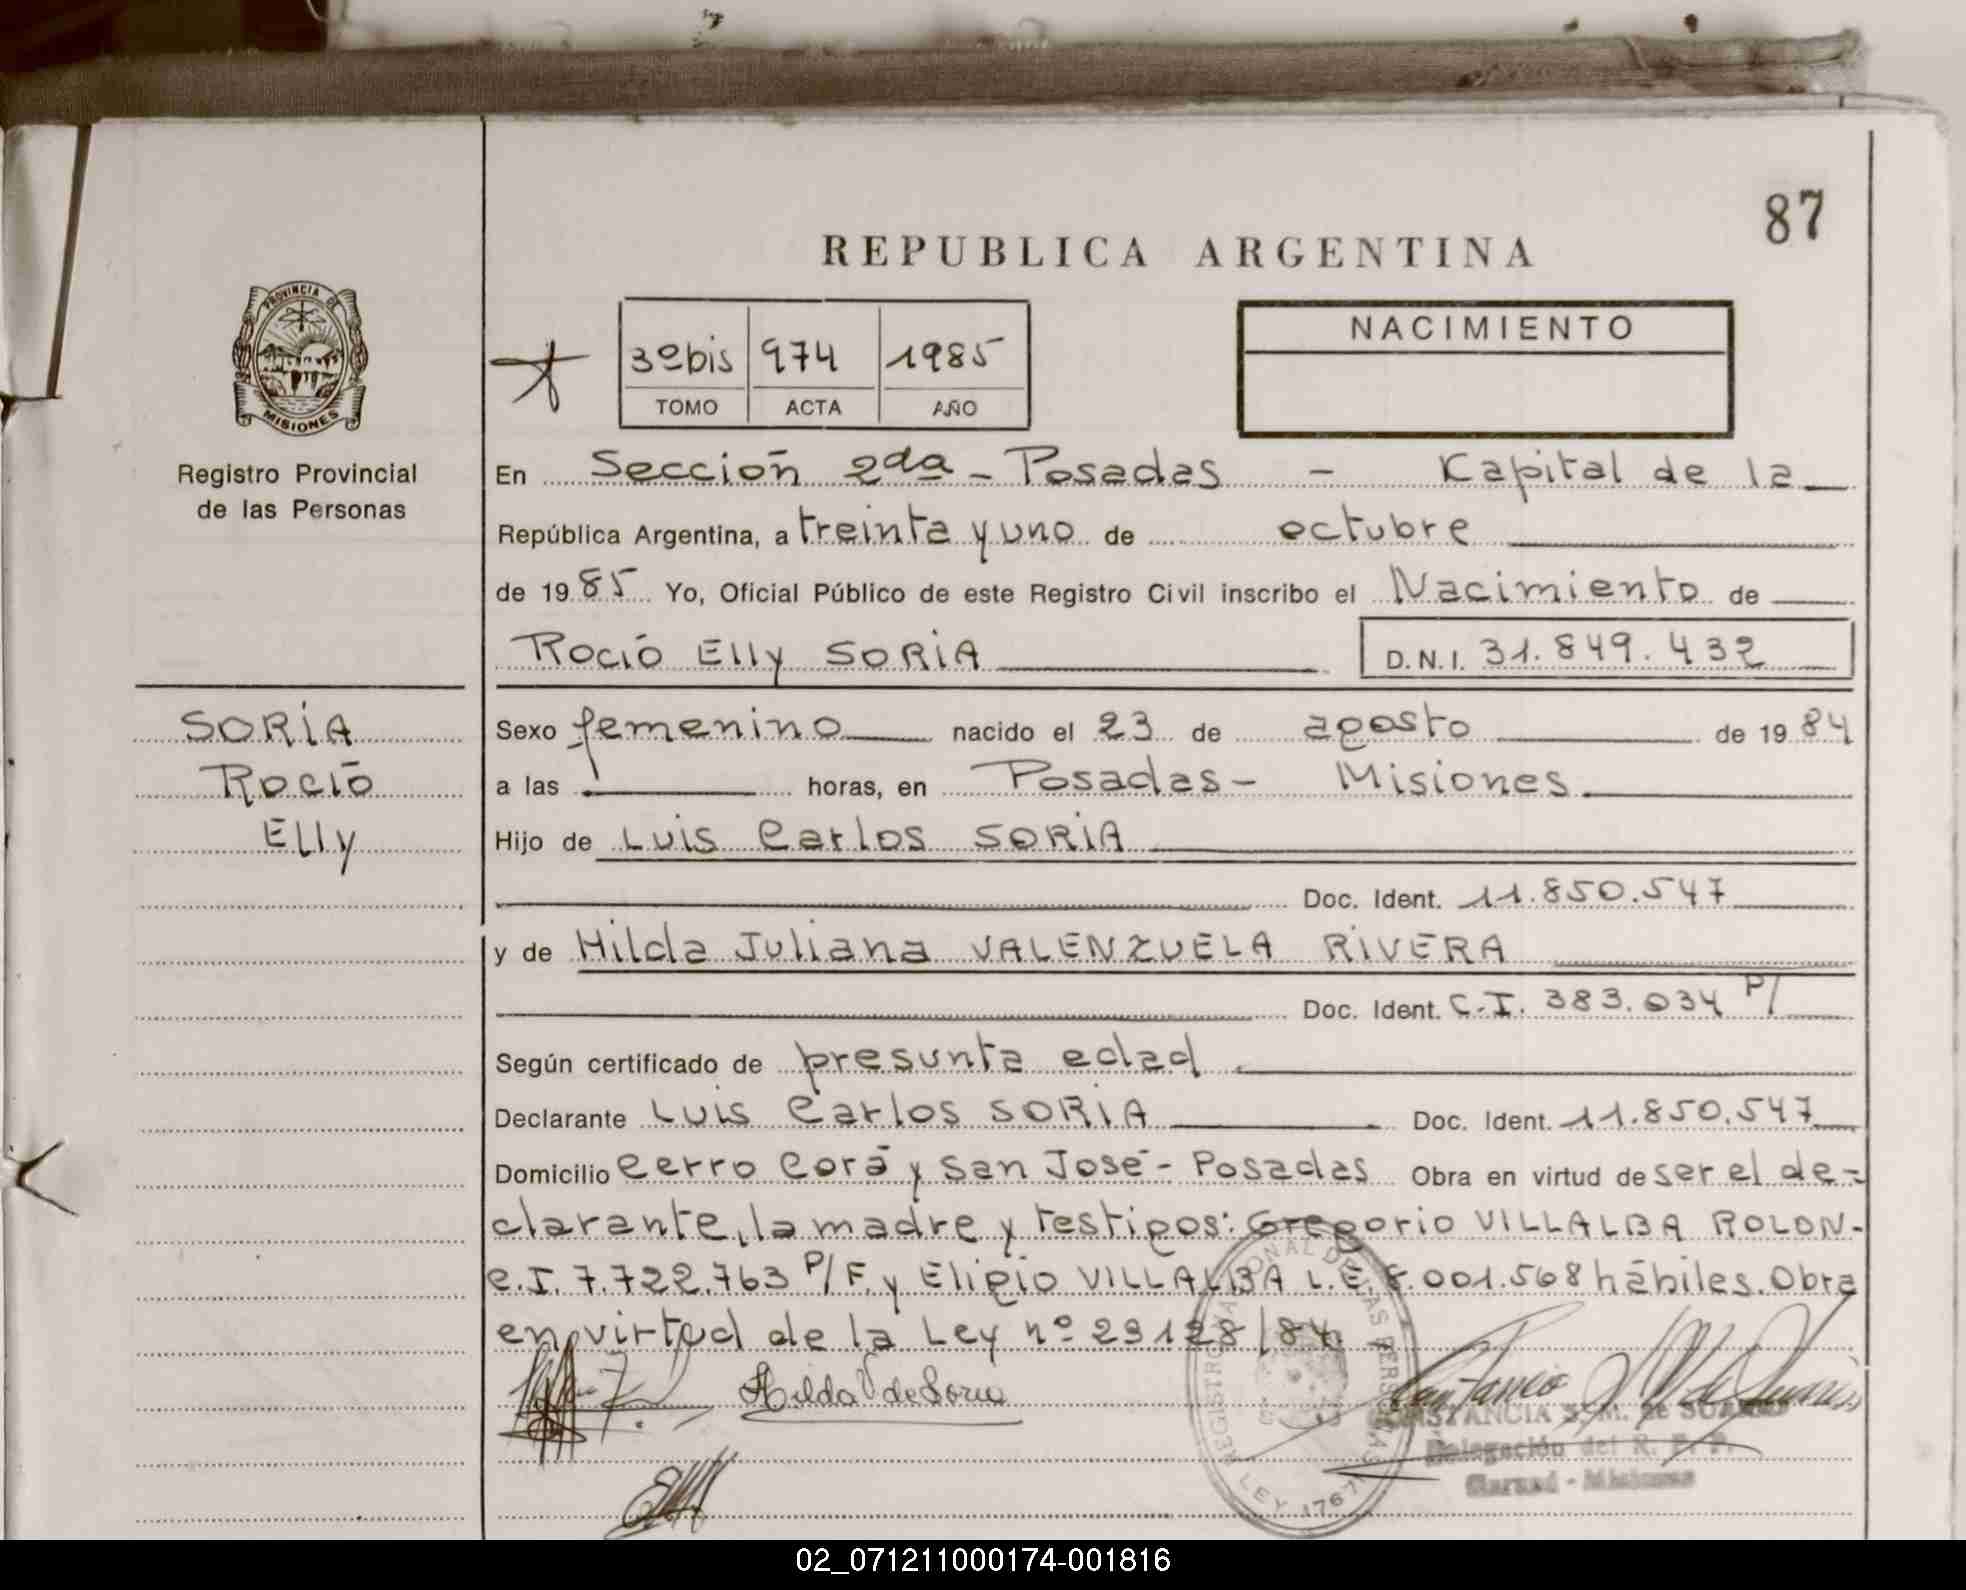 87
REPUBLICA ARGENTINA
PROVINCIA DE
MISIONES
Registro Provincial
de las Personas
3º bis 974 1985
TOMO ACTA AÑO
NACIMIENTO
En Sección 2da - Posadas - Kapital de la
República Argentina, a treinta y uno de octubre
de 1985 Yo, Oficial Público de este Registro Civil inscribo el Nacimiento de
Roció Elly SORIA D.N.I. 31.849.432
SORIA
Roció
Elly
Sexo femenino nacido el 23 de agosto de 1984
a las horas, en Posadas - Misiones
Hijo de Luis Carlos SORIA
Doc. Ident. 11.850.547
y de Hilda Juliana VALENZUELA RIVERA
Doc. Ident. C.I. 383.034 P/
Según certificado de presunta edad
Declarante Luis Carlos SORIA Doc. Ident. 11.850.547
Domicilio Cerro Corá y San José - Posadas Obra en virtud de ser el de=
clarante, la madre y testigos: Gregorio VILLALBA ROLON-
C.I. 7.722.763 P/F. y Eligio VILLALBA L.E 8.001.568 hábiles. Obra
en virtud de la Ley nº 23128/84.
Hilda V de Soria
CONSTANCIA S. M. de SUAREZ
Delegación del R. P. P.
Misiones
LEY 17671
02_071211000174-001816